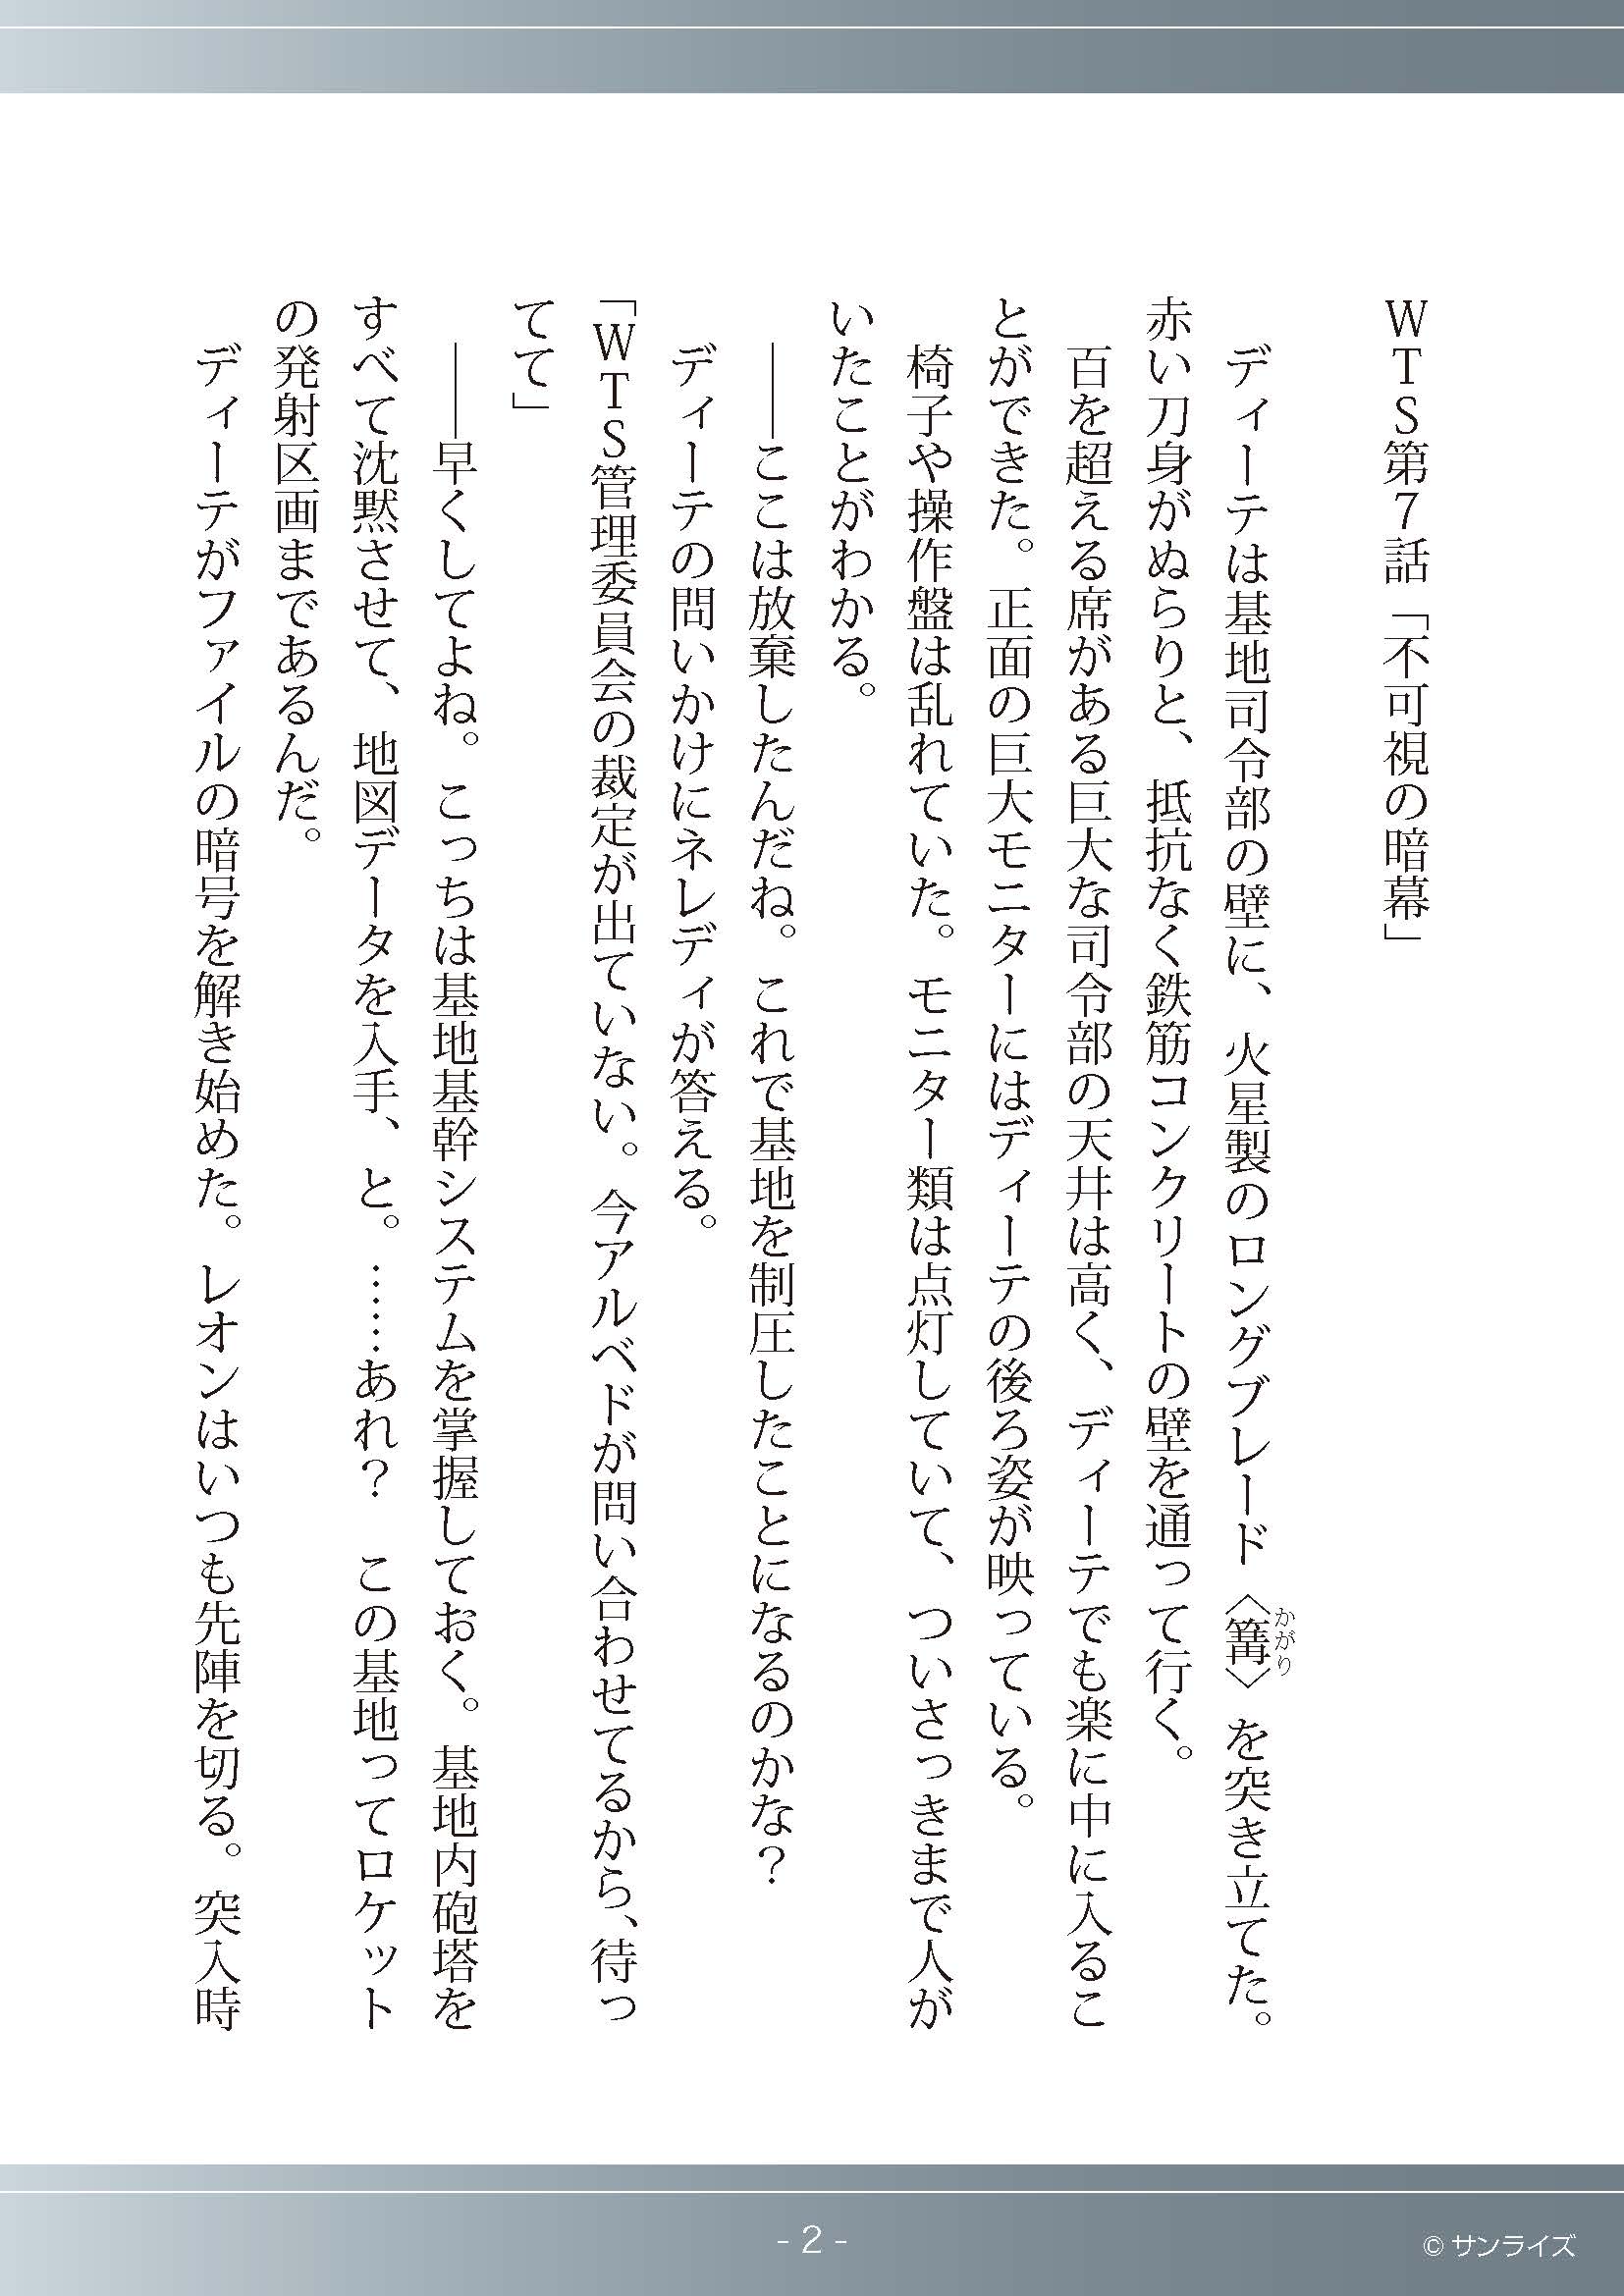 WTS第7話「不可視の暗幕」
　ディーテは基地司令部の壁に、火星製のロングブレード〈篝〉を突き立てた。
かがり
赤い刀身がぬらりと、抵抗なく鉄筋コンクリートの壁を通って行く。
　百を超える席がある巨大な司令部の天井は高く、ディーテでも楽に中に入るこ
とができた。正面の巨大モニターにはディーテの後ろ姿が映っている。
　椅子や操作盤は乱れていた。モニター類は点灯していて、ついさっきまで人が
いたことがわかる。
　――ここは放棄したんだね。これで基地を制圧したことになるのかな？
　ディーテの問いかけにネレディが答える。
「WTS管理委員会の裁定が出ていない。今アルベドが問い合わせてるから、待っ
てて」
　――早くしてよね。こっちは基地基幹システムを掌握しておく。基地内砲塔を
すべて沈黙させて、地図データを入手、と。……あれ？　この基地ってロケット
の発射区画まであるんだ。
　ディーテがファイルの暗号を解き始めた。レオンはいつも先陣を切る。突入時
- 2 -
© サンライズ